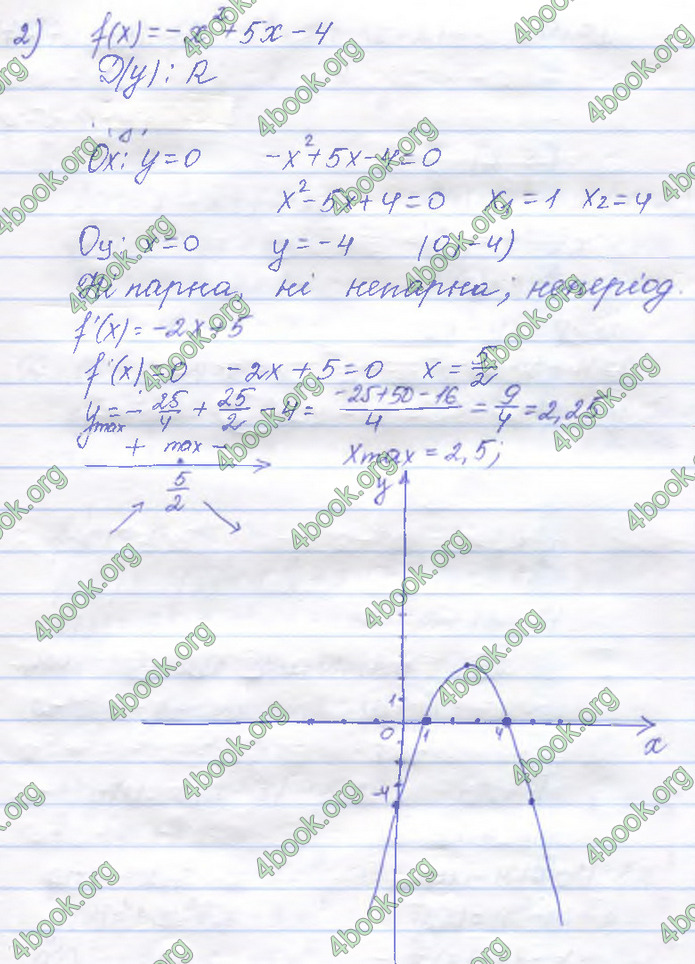 2) f(x) = -x² + 5x - 4
D(y): R
Ox: y=0 -x²+5x-4=0
x²-5x+4=0 x₁=1 x₂=4
Oy: x=0 y=-4 (0;-4)
Ні парна, ні непарна; неперіод.
f'(x) = -2x+5
f'(x)=0 -2x+5=0 x=5/2
y max = -25/4 + 25/2 - 4 = (-25+50-16)/4 = 9/4 = 2,25
+ max -
x max = 2,5;
5/2
y
1
0 1 4 x
-4
4book.org